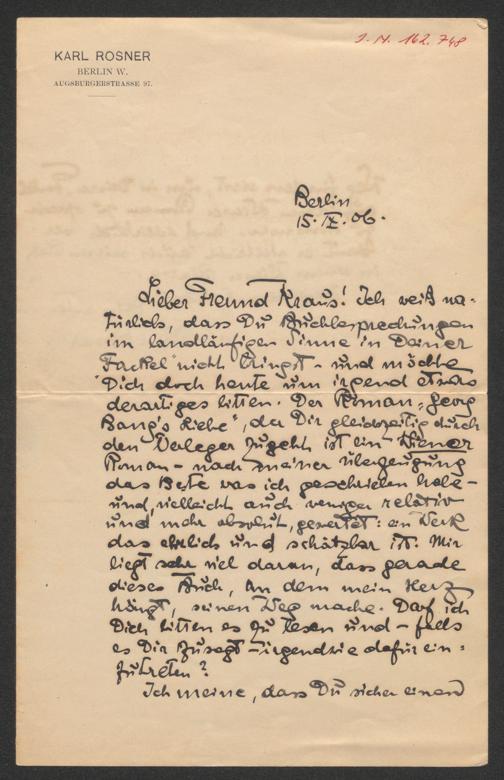 J. N. 162.748
KARL ROSNER
BERLIN W.
AUGSBURGERSTRASSE 97.
Berlin
15. IX. 06.
Lieber Freund Kraus! Ich weiß na-
türlich, dass Du Buchbesprechungen
im landläufigen Sinne in Deiner
"Fackel" nicht bringst - und möchte
Dich doch heute um irgend etwas
derartiges bitten. Der Roman "Georg
Bang's Liebe", der Dir gleichzeitig durch
den Verleger zugeht ist ein Wiener
Roman - nach meiner Überzeugung
das Beste was ich geschrieben habe -
und, vielleicht auch weniger relativ
und mehr absolut, gewertet: ein Werk
das ehrlich und schätzbar ist. Mir
liegt sehr viel daran, dass gerade
dieses Buch, an dem mein Herz
hängt, seinen Weg mache. Darf ich
Dich bitten es zu lesen und - falls
es Dir zusagt - irgendwie dafür ein-
zutreten?
Ich meine, dass Du sicher einen